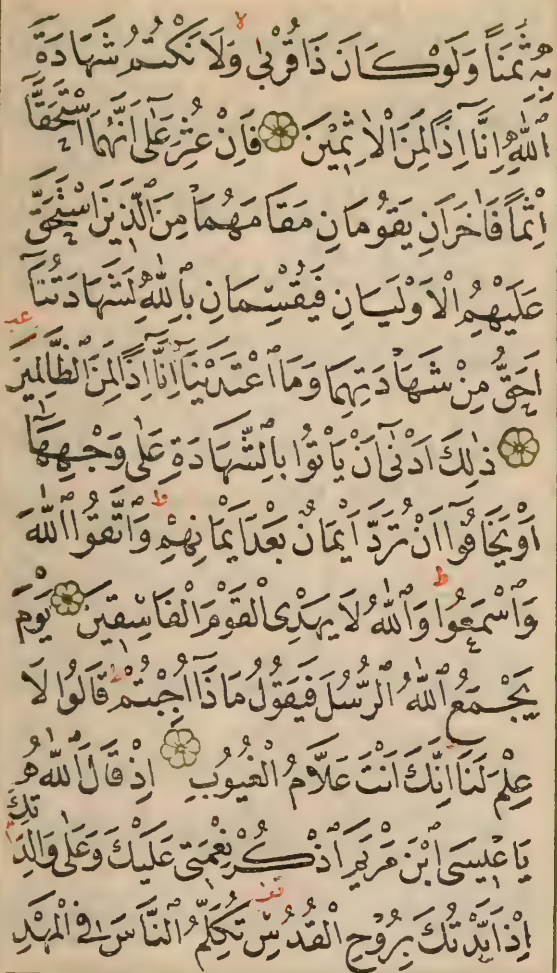 بِهِ ثَمَنًا وَلَوْ كَانَ ذَا قُرْبٰى وَلَا نَكْتُمُ شَهَادَةَ
اللّٰهِ اِنَّٓا اِذًا لَمِنَ الْاٰثِمٖينَ فَاِنْ عُثِرَ عَلٰٓى اَنَّهُمَا اسْتَحَقَّٓا
اِثْمًا فَاٰخَرَانِ يَقُومَانِ مَقَامَهُمَا مِنَ الَّذٖينَ اسْتَحَقَّ
عَلَيْهِمُ الْاَوْلَيَانِ فَيُقْسِمَانِ بِاللّٰهِ لَشَهَادَتُنَٓا
اَحَقُّ مِنْ شَهَادَتِهِمَا وَمَا اعْتَدَيْنَٓا اِنَّٓا اِذًا لَمِنَ الظَّالِمٖينَ
ذٰلِكَ اَدْنٰٓى اَنْ يَأْتُوا بِالشَّهَادَةِ عَلٰى وَجْهِهَٓا
اَوْ يَخَافُٓوا اَنْ تُرَدَّ اَيْمَانٌ بَعْدَ اَيْمَانِهِمْ وَاتَّقُوا اللّٰهَ
وَاسْمَعُوا وَاللّٰهُ لَا يَهْدِى الْقَوْمَ الْفَاسِقٖينَ يَوْمَ
يَجْمَعُ اللّٰهُ الرُّسُلَ فَيَقُولُ مَاذَٓا اُجِبْتُمْ قَالُوا لَا
عِلْمَ لَنَا اِنَّكَ اَنْتَ عَلَّامُ الْغُيُوبِ اِذْ قَالَ اللّٰهُ
يَا عٖيسَى ابْنَ مَرْيَمَ اذْكُرْ نِعْمَتٖى عَلَيْكَ وَعَلٰى وَالِدَتِكَ
اِذْ اَيَّدْتُكَ بِرُوحِ الْقُدُسِ تُكَلِّمُ النَّاسَ فِى الْمَهْدِ